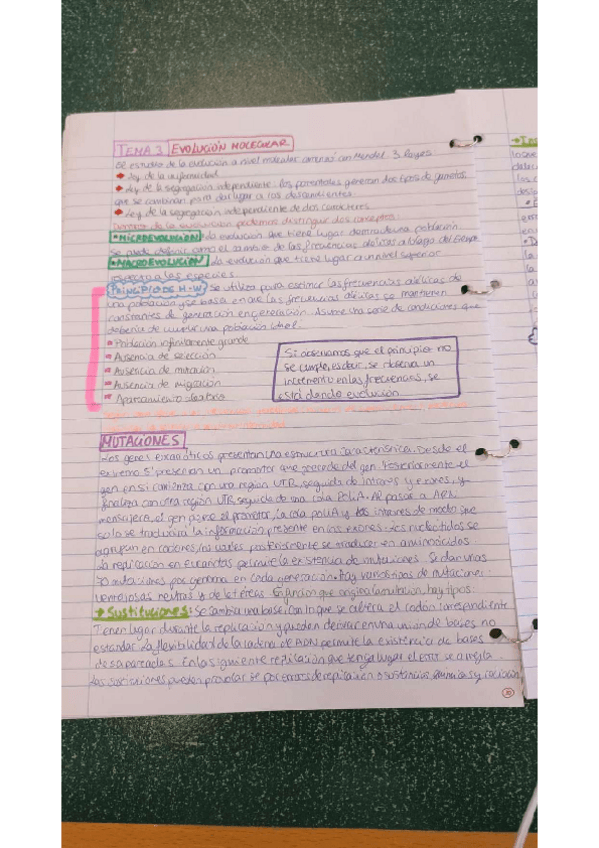 TEMA 3 EVOLUCIÓN MOLECULAR
El estudio de la evolución a nivel molecular comenzó con Mendel. 3 leyes
Ley de la uniformidad
Ley de la segregación independiente: los parentales generan dos tipos de gametos,
que se combinan para dar lugar a los descendientes.
Ley de la segregación independiente de dos caracteres
Dentro de la evolución podemos distinguir dos conceptos
MICROEVOLUCIÓN: la evolución que tiene lugar dentro de una población.
Se puede definir como el cambio de las frecuencias alélicas a lo largo del tiempo
MACROEVOLUCIÓN: la evolución que tiene lugar a un nivel superior
respecto a las especies.
PRINCIPIO DE H-W: Se utiliza para estimar las frecuencias alélicas de
una población y se basa en que las frecuencias alélicas se mantienen
constantes de generación en generación. Asume una serie de condiciones que
debería de cumplir una población ideal:
Población infinitamente grande
Ausencia de selección
Ausencia de mutación
Ausencia de migración
Apareamiento aleatorio
Si observamos que el principio no
se cumple, es decir, se observa un
incremento en las frecuencias, se
está dando evolución.
MUTACIONES
Los genes eucarióticos presentan una estructura característica. Desde el
extremo 5' presentan un promotor que precede del gen. Posteriormente el
gen en sí comienza con una región UTR, seguida de intrones y exones, y
finaliza con otra región UTR seguida de una cola PoliA. Al pasar a ARN
mensajero, el gen pierde el promotor, la cola poliA y los intrones de modo que
solo se traducirá la información presente en los exones. Los nucleótidos se
agrupan en codones, los cuales posteriormente se traducen en aminoácidos.
La replicación en eucariotas permite la existencia de mutaciones. Se dan unas
30 mutaciones por genoma en cada generación. Hay varios tipos de mutaciones:
ventajosas, neutras y deletéreas. En función que origina la mutación, hay tipos:
Sustituciones: Se cambia una base, con lo que se altera el codón correspondiente
Tienen lugar durante la replicación y pueden deberse a una unión de bases no
estándar. La flexibilidad de la cadena de ADN permite la existencia de bases
desapareadas. En la siguiente replicación que tenga lugar el error se arregla.
Las sustituciones pueden provocarse por errores de replicación o sustancias químicas y radiación